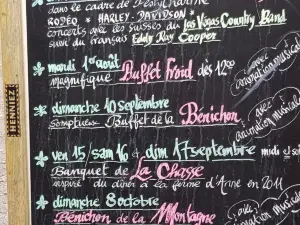 dans le cadre de
RODÉO * HARLEY-DAVIDSON *
concerts avec les Suisses du Las Vegas Country Band
suivi du français Eddy Ray Cooper
mardi 1er août
magnifique Buffet Froid dès 12oo
avec
animation musicale
dimanche 10 septembre
somptueux Buffet de la Bénichon
avec
animation musicale
ven 15 sam 16 et dim 17 septembre midi et
Banquet de La Chasse
inspiré du dîner à la ferme d'Anne en 2011
dimanche 8 octobre
Bénichon de la Montagne
avec
animation musicale
HENNIEZ